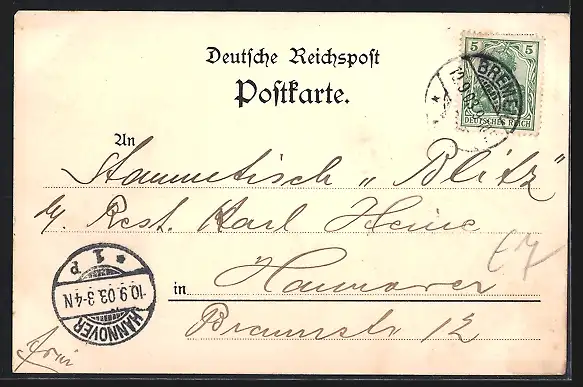 Deutsche Reichspost
Postkarte.
5 5
BREMEN
DEUTSCHES REICH
An
Stammtisch „Blitz"
Rest. Karl Heine
in Hannover
Braunstr 12
* 1 P
10.9.03.3-4N
HANNOVER